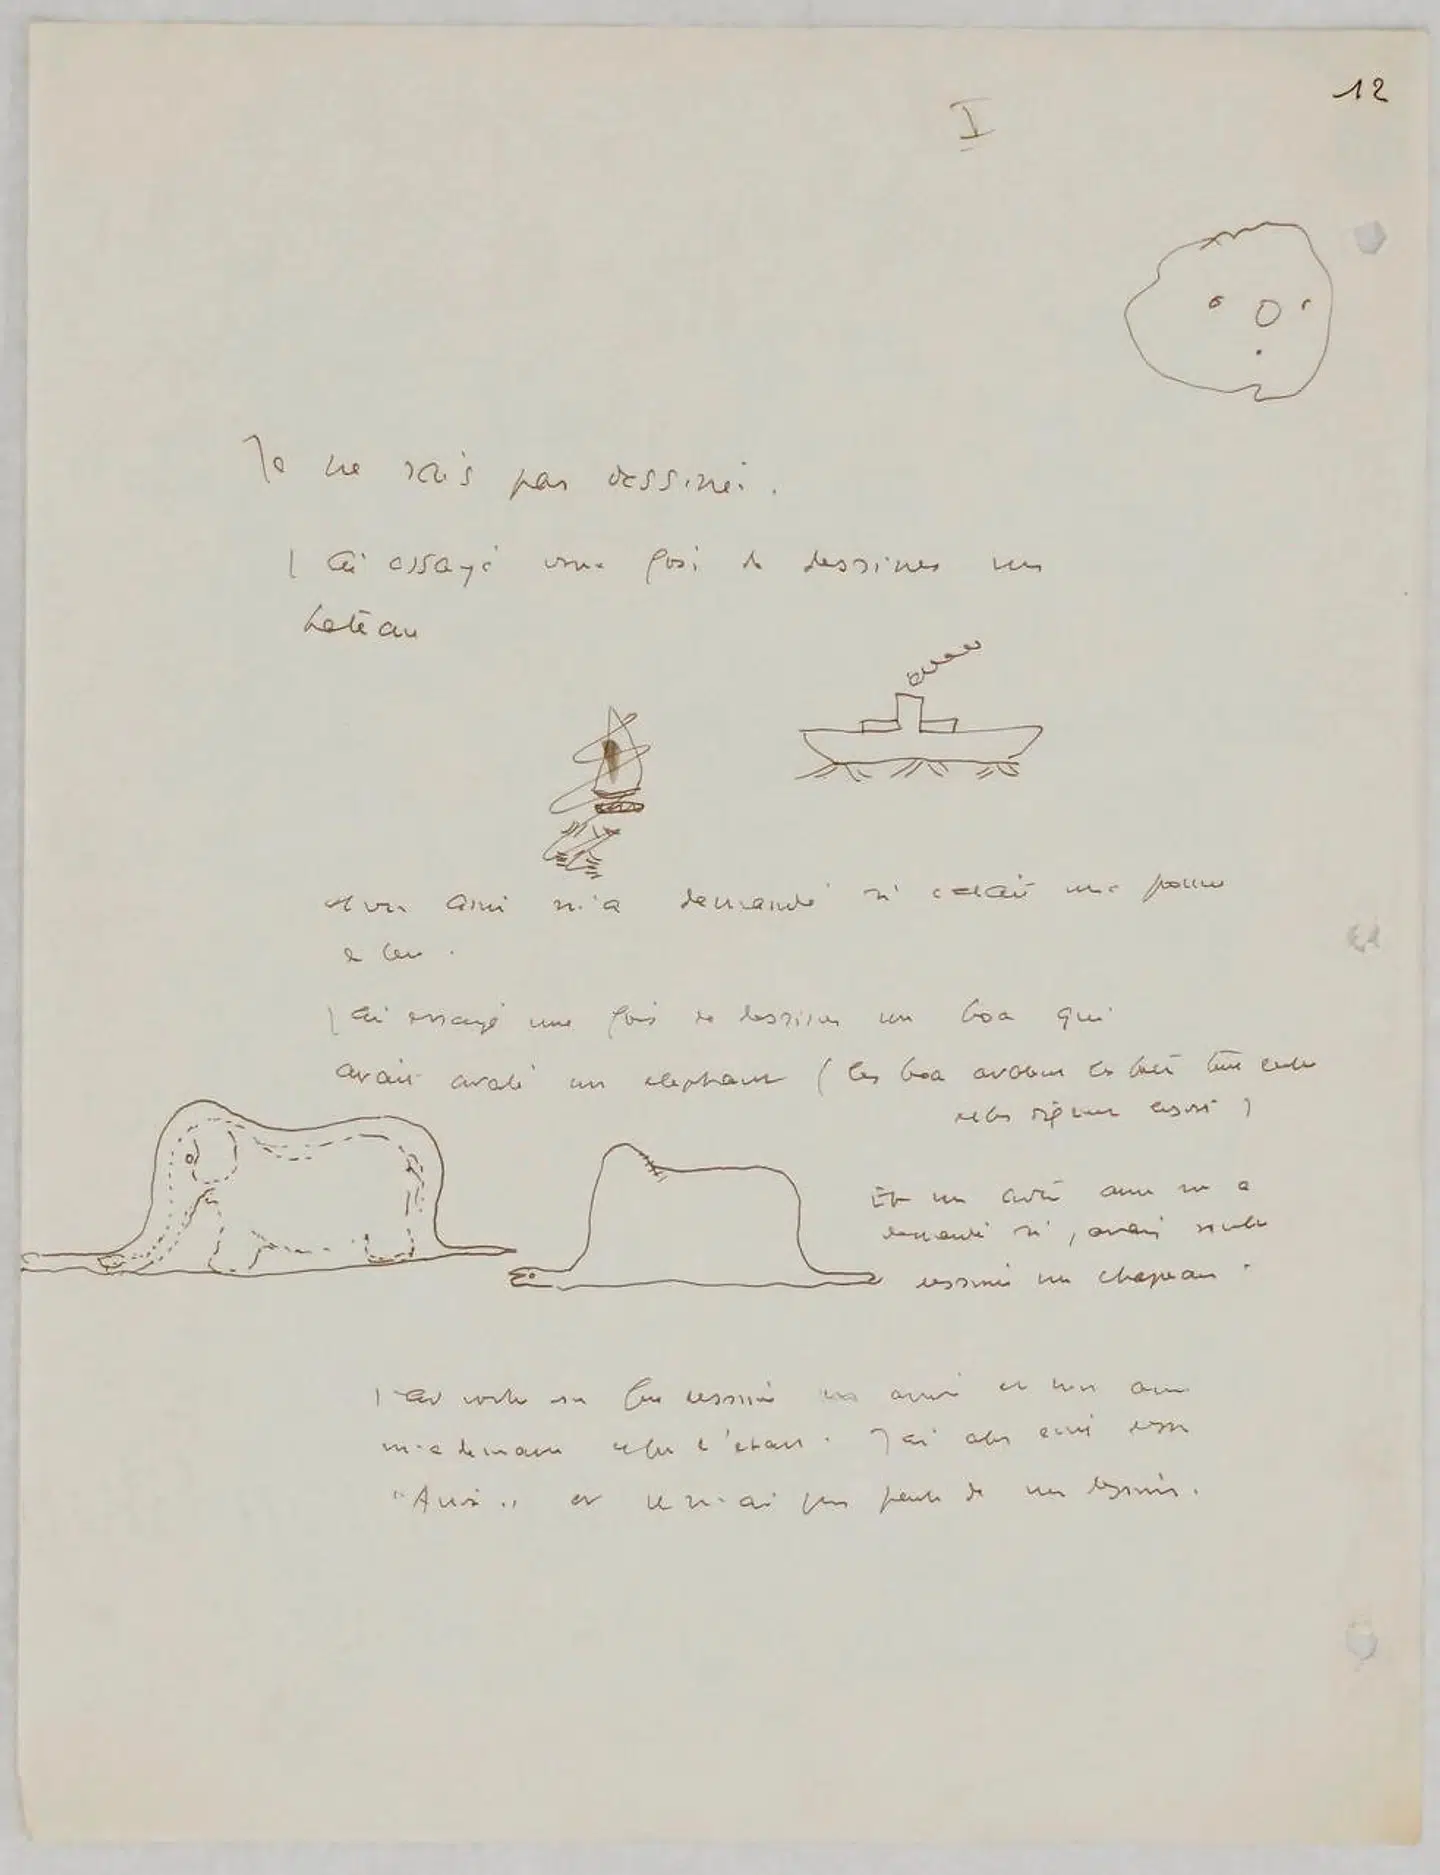 12
I
Je ne sais pas dessiner.
J ai essayé une fois de dessiner un
bateau
et un ami m'a demandé si c était une pomme
de terre.
J ai essayé une fois de dessiner un boa qui
avait avalé un elephant (les boa avalent les
Et un autre ami m a
demandé si j avais voulu
dessiner un chapeau.
J ai dessiné un ami
m a demandé J ai alors
"Ami" et je n ai pas de dessins.